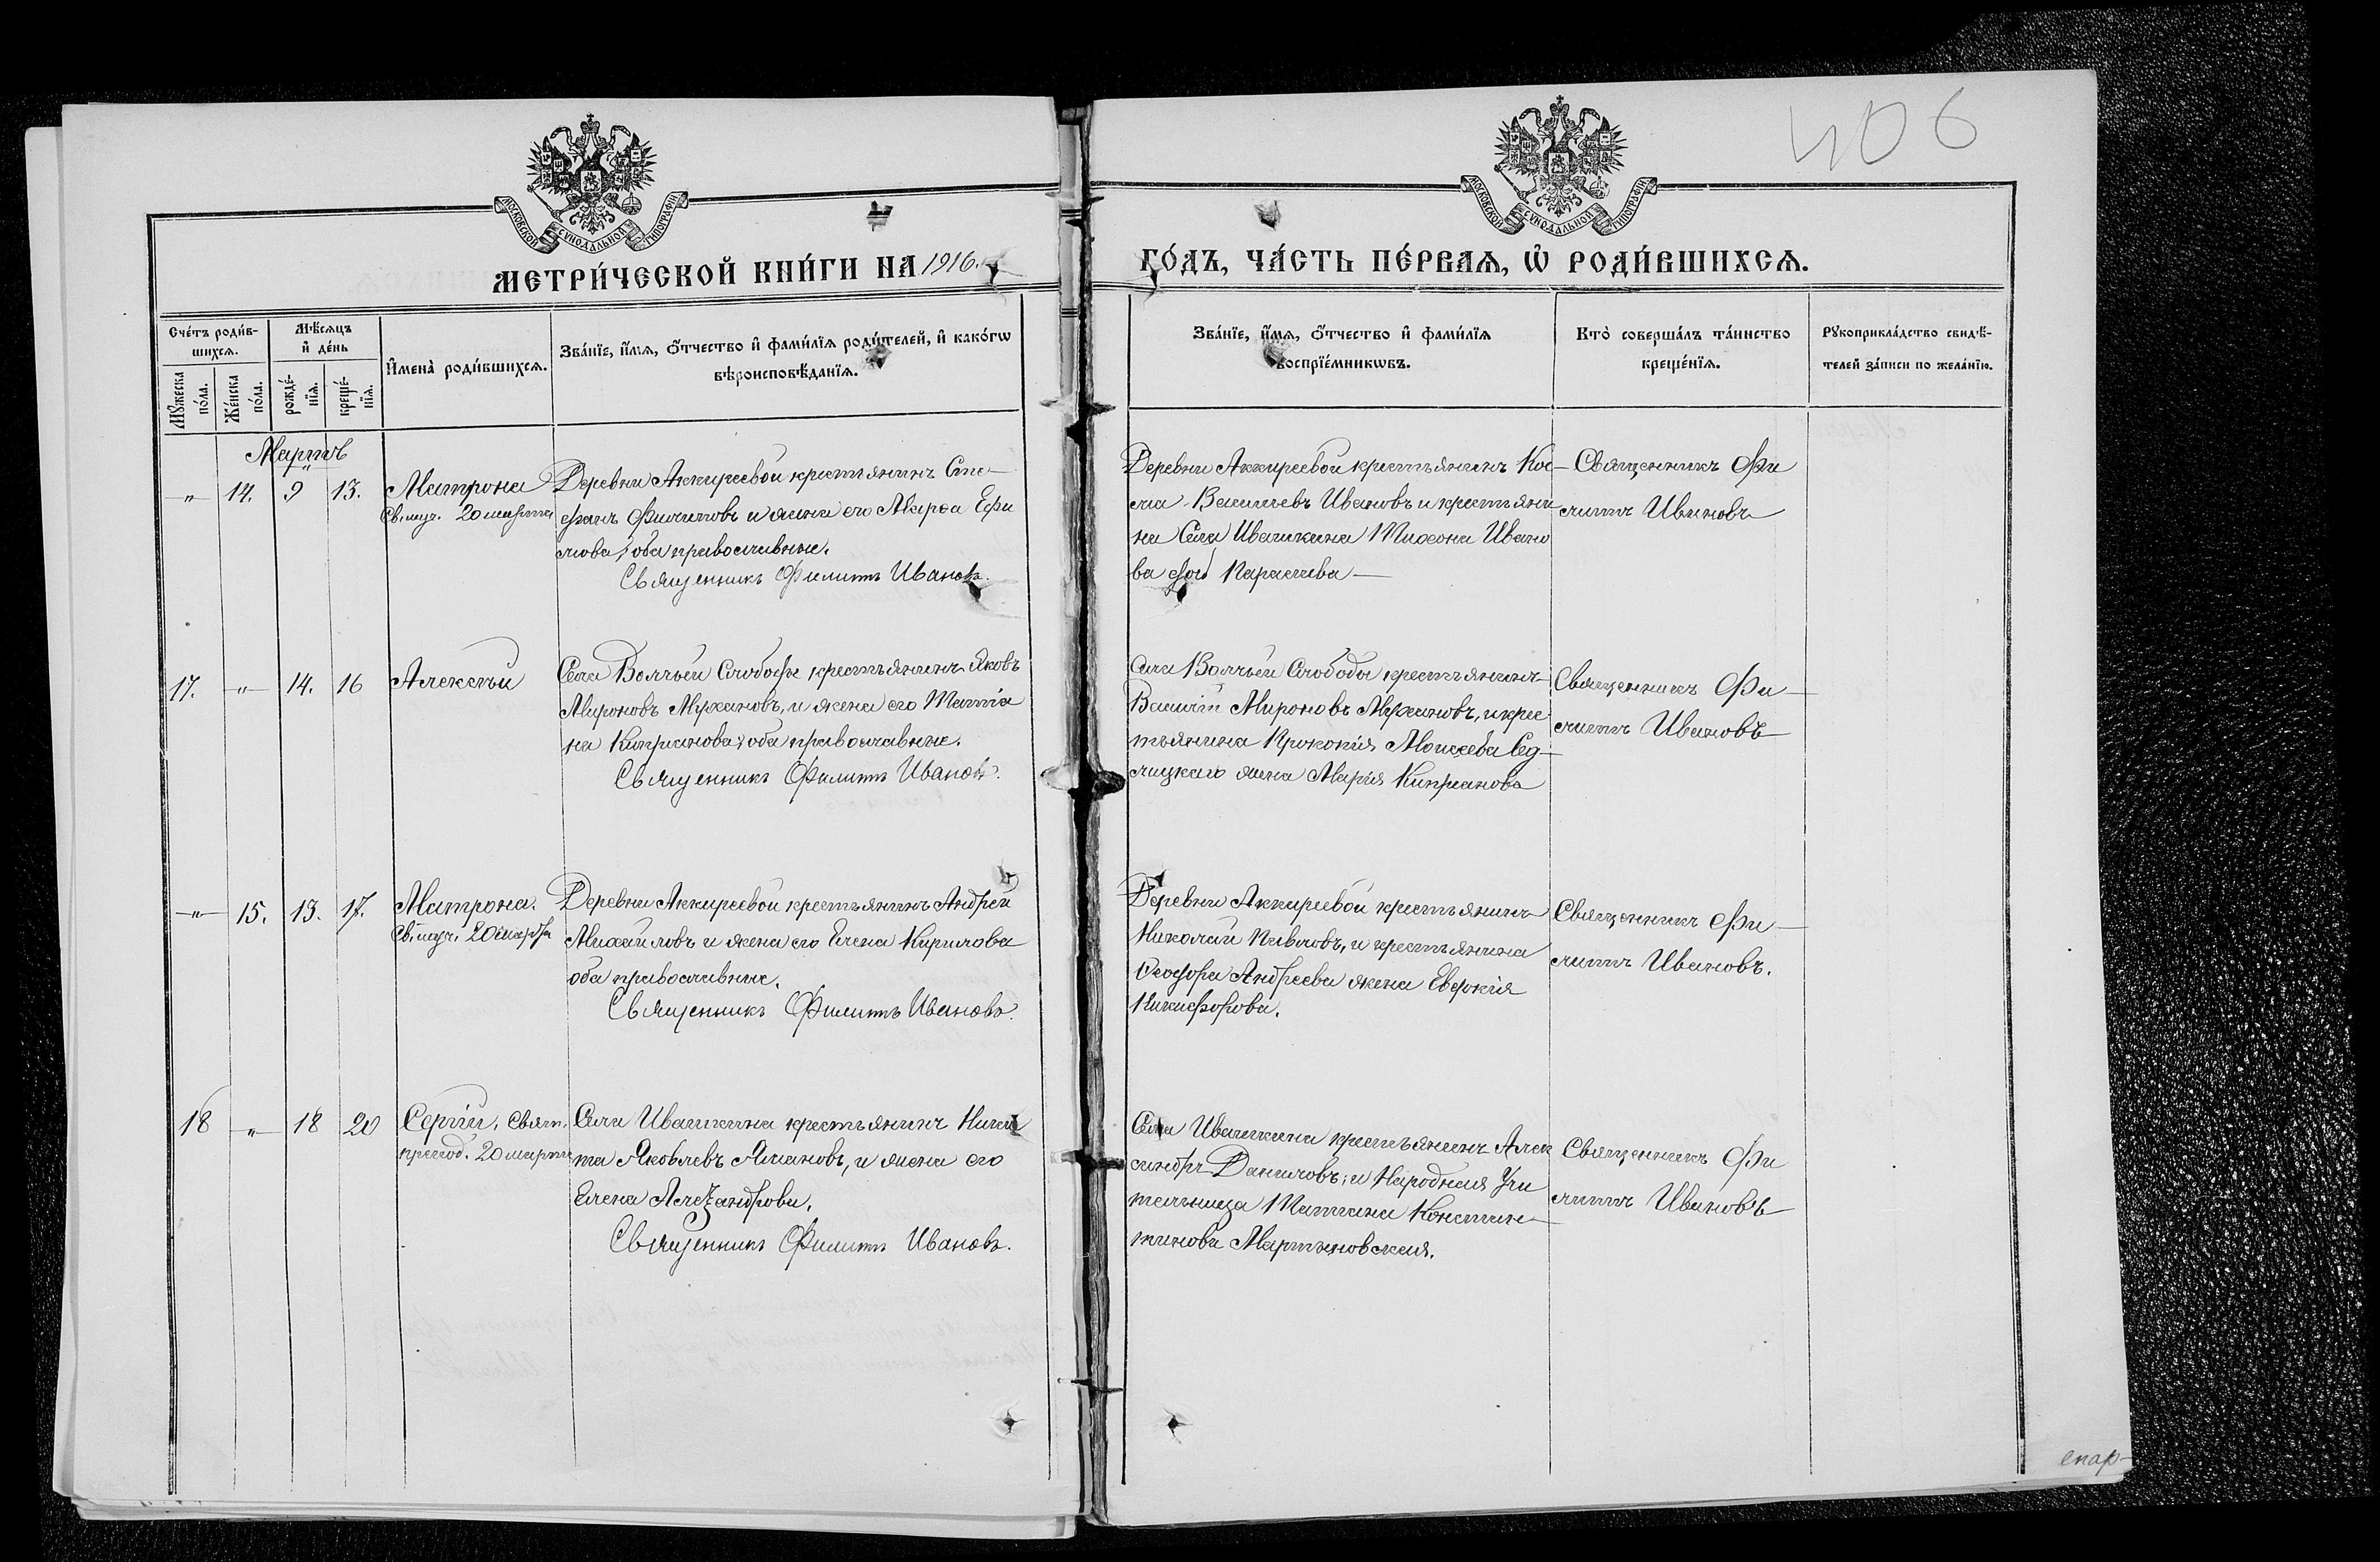 406
МОСКОВСКОЙ СУНОДАЛЬНОЙ ТИПОГРАФІИ
МОСКОВСКОЙ СУНОДАЛЬНОЙ ТИПОГРАФІИ
МЕТРИ́ЧЕСКОЙ КНИ́ГИ НА 1916.
ГО́ДЪ, ЧА́СТЬ ПЕ́РВАѦ, Ѡ҆ РОДИ́ВШИХСѦ.
Сче́тъ роди́в-
шихсѧ.
Мꙋ́жеска по́ла.
Же́нска по́ла.
Мѣ́сѧцъ
и҆ де́нь
рожде́-
нїѧ.
креще́-
нїѧ.
И҆мена̀ роди́вшихсѧ.
Зва́нїе, и҆́мѧ, ѻ҆́тчество и҆ фами́лїѧ роди́телей, и҆ како́гѡ
вѣроисповѣ́данїѧ.
Зва́нїе, и҆́мѧ, ѻ҆́тчество и҆ фами́лїѧ
воспрїе́мникѡвъ.
Кто̀ соверша́лъ та́инство
креще́нїѧ.
Рꙋкоприкла́дство свидѣ́-
телей за́писи по жела́нїю.
Мартъ
„ 14. 9 13.
Матрона
Св. муч. 20 марта
Деревни Аккиреевой крестьянинъ Сте-
фанъ Филиповъ и жена его Марѳа Ефи
мова, оба православные.
Священникъ Филиппъ Ивановъ.
Деревни Аккиреевой крестьянинъ Кос-
ма Васильевъ Ивановъ и крестьяни
на Села Ивашкина Тихона Ивано
ва дочь Параскева
Священникъ Фи
липпъ Ивановъ
17. „ 14. 16
Алексѣй
Села Волчьей Слободы крестьянинъ Яковъ
Мироновъ Мухановъ, и жена его Татіа
на Кипріанова, оба православные.
Священникъ Филиппъ Ивановъ.
Села Волчьей Слободы крестьянинъ
Василій Мироновъ Мухановъ, и крес
тьянина Прокопія Моисеева Сед-
лицкаго жена Марія Кипріанова
Священникъ Фи-
липпъ Ивановъ
„ 15. 13. 17.
Матрона.
Св. муч. 20 марта
Деревни Аккиреевой крестьянинъ Андрей
Михайловъ и жена его Елена Кирилова
оба православные.
Священникъ Филиппъ Ивановъ.
Деревни Аккиреевой крестьянинъ
Николай Павловъ, и крестьянина
Ѳеодора Андреева жена Евдокія
Никифорова.
Священникъ Фи-
липпъ Ивановъ.
18 „ 18 20
Сергій. Свят.
препод. 20 марта
Села Ивашкина крестьянинъ Ники
та Яковлевъ, и жена его
Елена Александрова.
Священникъ Филиппъ Ивановъ.
Села Ивашкина крестьянинъ Алек
сандръ Даниловъ; и Народная Учи
тельница Татiана Констан-
тинова Мартыновская.
Священникъ Фи
липпъ Ивановъ
епар-